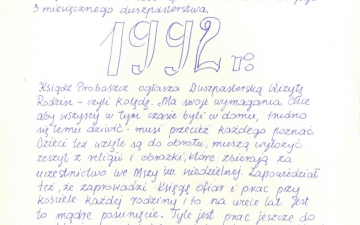 3 miesięcznego duszpasterstwa.
1992 r:
Ksiądz Proboszcz ogłasza Duszpasterską Wizytę
Rodzin - czyli Kolędę. Ma swoje wymagania. Chce
aby wszyscy w tym czasie byli w domu, trudno
się temu dziwić - musi przecież każdego poznać.
Dzieci też wzięte są do obrotu, muszą wyłożyć
zeszyt z religii i obrazki, które zbierają za
uczestnictwo we Mszy św. niedzielnej. Zapowiedział
też, że zaprowadzi Księgę ofiar i prac przy
kościele każdej rodziny i to na wiele lat. Jest
to mądre posunięcie. Tyle jest prac jeszcze do